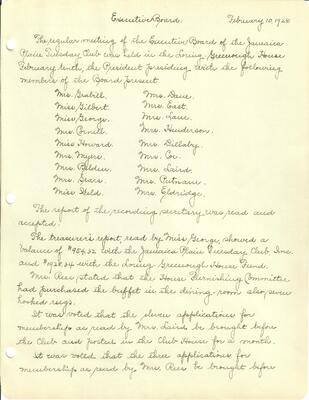 Executive Board.
February 10, 1928
The regular meeting of the Executive Board of the Jamaica
Plain Tuesday Club was held in the Loring Greenough House
February tenth, the President presiding with the following
members of the Board present
Mrs. Grabill
Mrs. Dane.
Miss Gilbert
Mrs. East.
Miss George.
Mrs. Lane.
Mrs. Cornell
Mrs. Henderson.
Miss Howard.
Mrs. Dillaby.
Mrs. Myers.
Mrs. Coe.
Mrs. Belden.
Mrs. Laird.
Mrs. Sears.
Mrs. Putnam.
Miss Held.
Mrs. Eldridge.
The report of the recording secretary was read and
accepted.
The treasurer's report, read by Miss George, showed a
balance of with the Jamaica Plain Tuesday Club Inc.
and with the Loring Greenough House Fund.
Mrs. Rees stated that the House Furnishing Committee
had purchased the buffet in the dining-room also seven
hooked rugs.
It was voted that the eleven applications for
membership as read by Mrs. Laird be brought before
the Club and posted in the Club House for a month.
It was voted that the three applications for
membership as read by Mrs. Rees be brought before